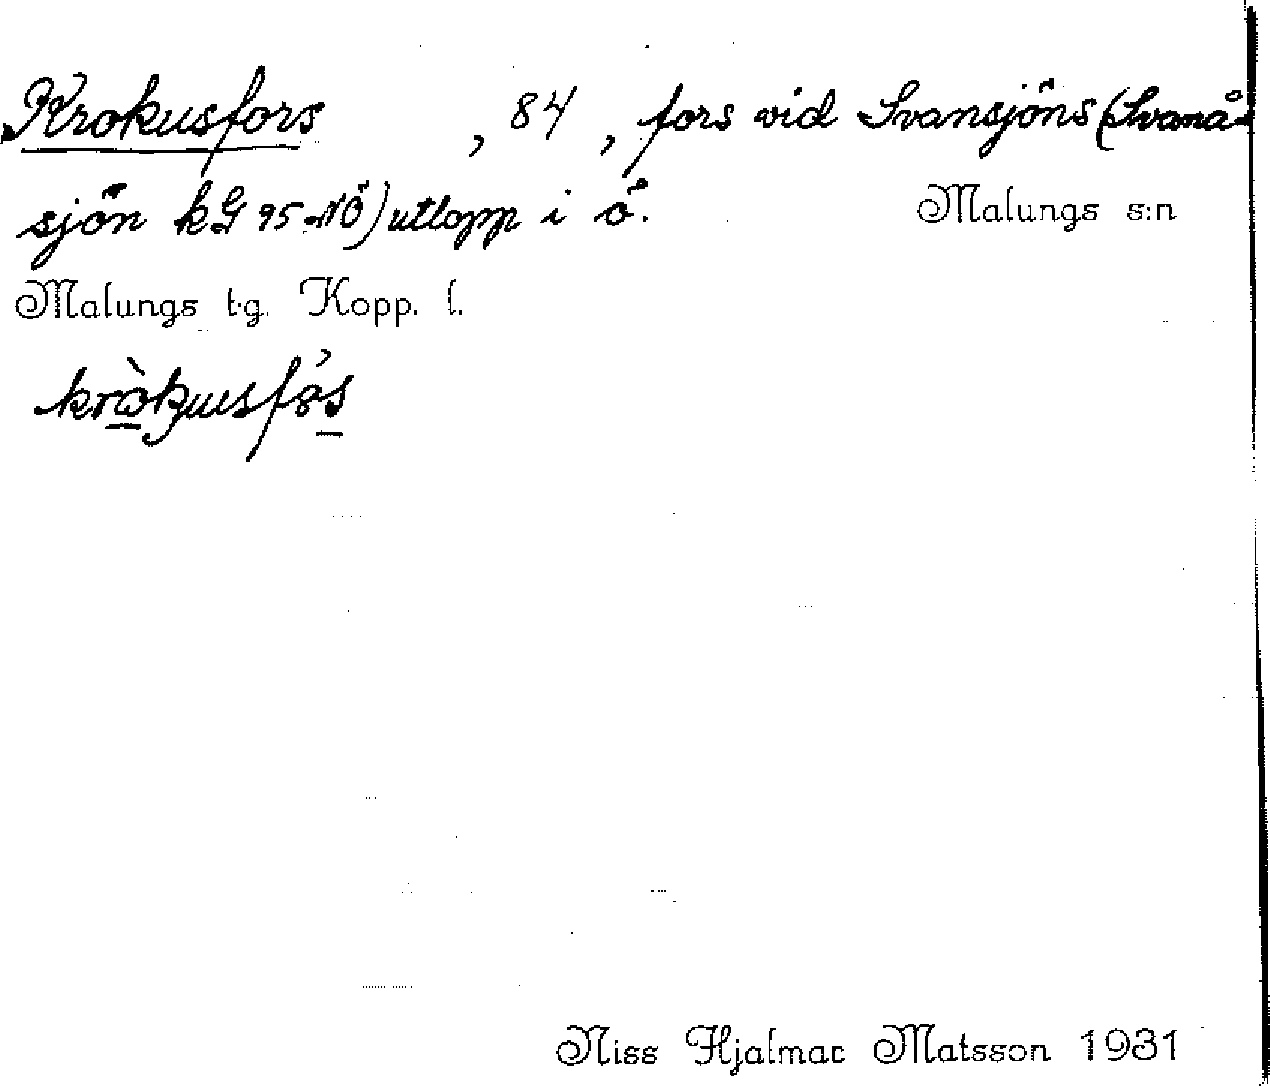 Krokusfors , 84 , fors vid Svansjöns (Svanå-
sjön kG 95 NÖ) utlopp i ö. Malungs s:n
Malungs t.g. Kopp. l.
Niss Hjalmar Matsson 1931